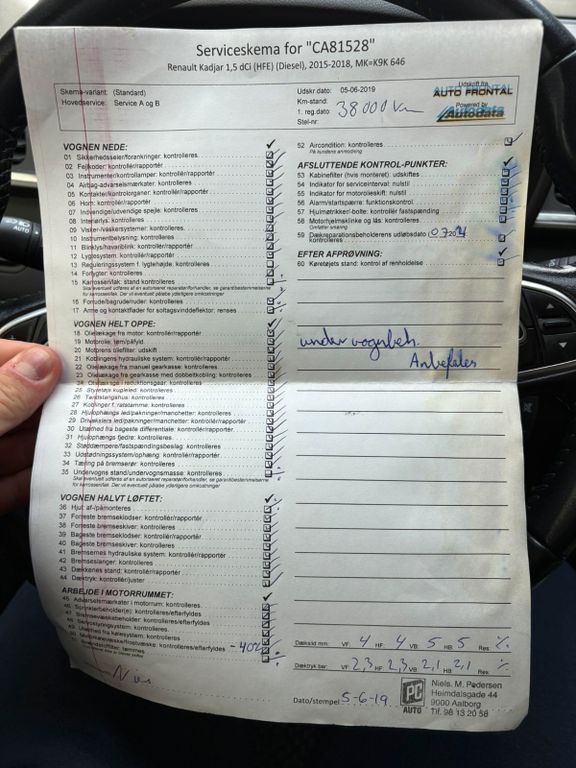 Serviceskema for "CA81528"
Renault Kadjar 1,5 dCi (HFE) (Diesel), 2015-2018, MK=K9K 646
Skema-variant: (Standard)
Hovedservice: Service A og B
Udskr.dato: 05-06-2019
Km-stand:
1. reg.dato: 38000 Km
Stel-nr:
Udskrift fra
AUTO FRONTAL
Powered by
Autodata
VOGNEN NEDE:
01 Sikkerhedsseler/forankringer: kontrolleres
02 Fejlkoder: kontrollér/rapportér
03 Instrumenter/kontrollamper: kontrollér/rapportér
04 Airbag-advarselsmærkater: kontrolleres
05 Kontakter/kontrolorganer: kontrollér/rapportér
06 Horn: kontrollér/rapportér
07 Indvendige/udvendige spejle: kontrolleres
08 Interiørlys: kontrolleres
09 Visker-/vaskersystemer: kontrolleres
10 Instrumentbelysning: kontrolleres
11 Blinklys/havariblink: kontrolleres
12 Lygtesystem: kontrollér/rapportér
13 Reguleringssystem f. lygtehøjde: kontrolleres
14 Forlygter: kontrolleres
15 Karrosseri/lak: stand kontrolleres
16 Forrude/bagrude/ruder: kontrolleres
17 Arme og kontaktflader for soltagsvinddeflektor: renses
VOGNEN HELT OPPE:
18 Olielækage fra motor: kontrollér/rapportér
19 Motorolie: tøm/påfyld
20 Motorens oliefilter: udskift
21 Koblingens hydrauliske system: kontrollér/rapportér
22 Olielækage fra manuel gearkasse: kontrolleres
23 Olielækage fra gearkasse med dobbeltkobling: kontrolleres
24 Olielækage i reduktionsgear: kontrolleres
25 Styretøjs kugleled: kontrolleres
26 Tandstangshus: kontrolleres
27 Koblinger f. ratstamme: kontrolleres
28 Hjulophængs led/pakninger/manchetter: kontrolleres
29 Drivakslers led/pakninger/manchetter: kontrollér/rapportér
30 Utæthed fra bageste differentiale: kontrollér/rapportér
31 Hjulophængs fjedre: kontrolleres
32 Støddæmpere/fastspændingsbeslag: kontrolleres
33 Udstødningssystem/ophæng: kontrollér/rapportér
34 Tæring på bremserør: kontrolleres
35 Undervogns stand/undervognsmasse: kontrolleres
VOGNEN HALVT LØFTET:
36 Hjul: af-/påmonteres
37 Forreste bremseklodser: kontrollér/rapportér
38 Forreste bremseskiver: kontrolleres
39 Bageste bremseklodser: kontrollér/rapportér
40 Bageste bremseskiver: kontrolleres
41 Bremsernes hydrauliske system: kontrollér/rapportér
42 Bremseslanger: kontrolleres
43 Dækkenes stand: kontrollér/rapportér
44 Dæktryk: kontrollér/juster
ARBEJDE I MOTORRUMMET:
45 Advarselsmærkater i motorrum: kontrolleres
46 Sprinklerbeholder(e): kontrolleres/efterfyldes
kontrolleres/efterfyldes
kontrolleres
kontrolleres
kontrolleres/efterfyldes - 40
52 Aircondition: kontrolleres
På kundens anmodning
AFSLUTTENDE KONTROL-PUNKTER:
53 Kabinefilter (hvis monteret): udskiftes
54 Indikator for serviceinterval: nulstil
55 Indikator for motorolieskift: nulstil
56 Alarm/startspærre: funktionskontrol
57 Hjulmøtrikker/-bolte: kontrollér fastspænding
58 Motorhjelmsklinke og lås: kontrolleres
Om/efter smøring
59 Dækreparationsbeholderens udløbsdato
kontrolleres
EFTER AFPRØVNING:
60 Køretøjets stand: kontrol af renholdelse
under vognbeh.
Anbefales
Dækslid mm: VF: 4 HF: 4 VB: 5 HB: 5 Res: %
Dæktryk bar: VF: 2,3 HF: 2,3 VB: 2,1 HB: 2,1 Res: %
Dato/stempel 5-6-19
PC
AUTO
Niels. M. Pedersen
Heimdalsgade 44
9000 Aalborg
Tlf. 98 13 20 56